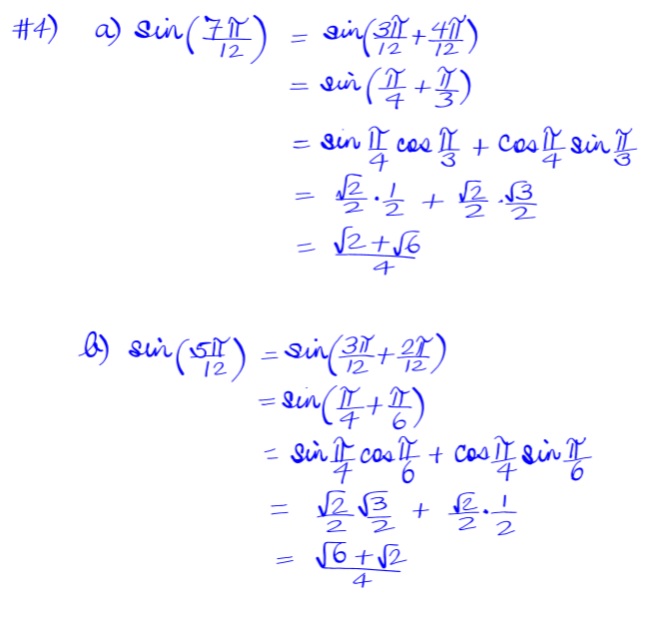 #4) a) sin(7π/12) = sin(3π/12 + 4π/12)
= sin(π/4 + π/3)
= sin π/4 cos π/3 + cos π/4 sin π/3
= √2/2 · 1/2 + √2/2 · √3/2
= (√2 + √6)/4
b) sin(5π/12) = sin(3π/12 + 2π/12)
= sin(π/4 + π/6)
= sin π/4 cos π/6 + cos π/4 sin π/6
= √2/2 √3/2 + √2/2 · 1/2
= (√6 + √2)/4